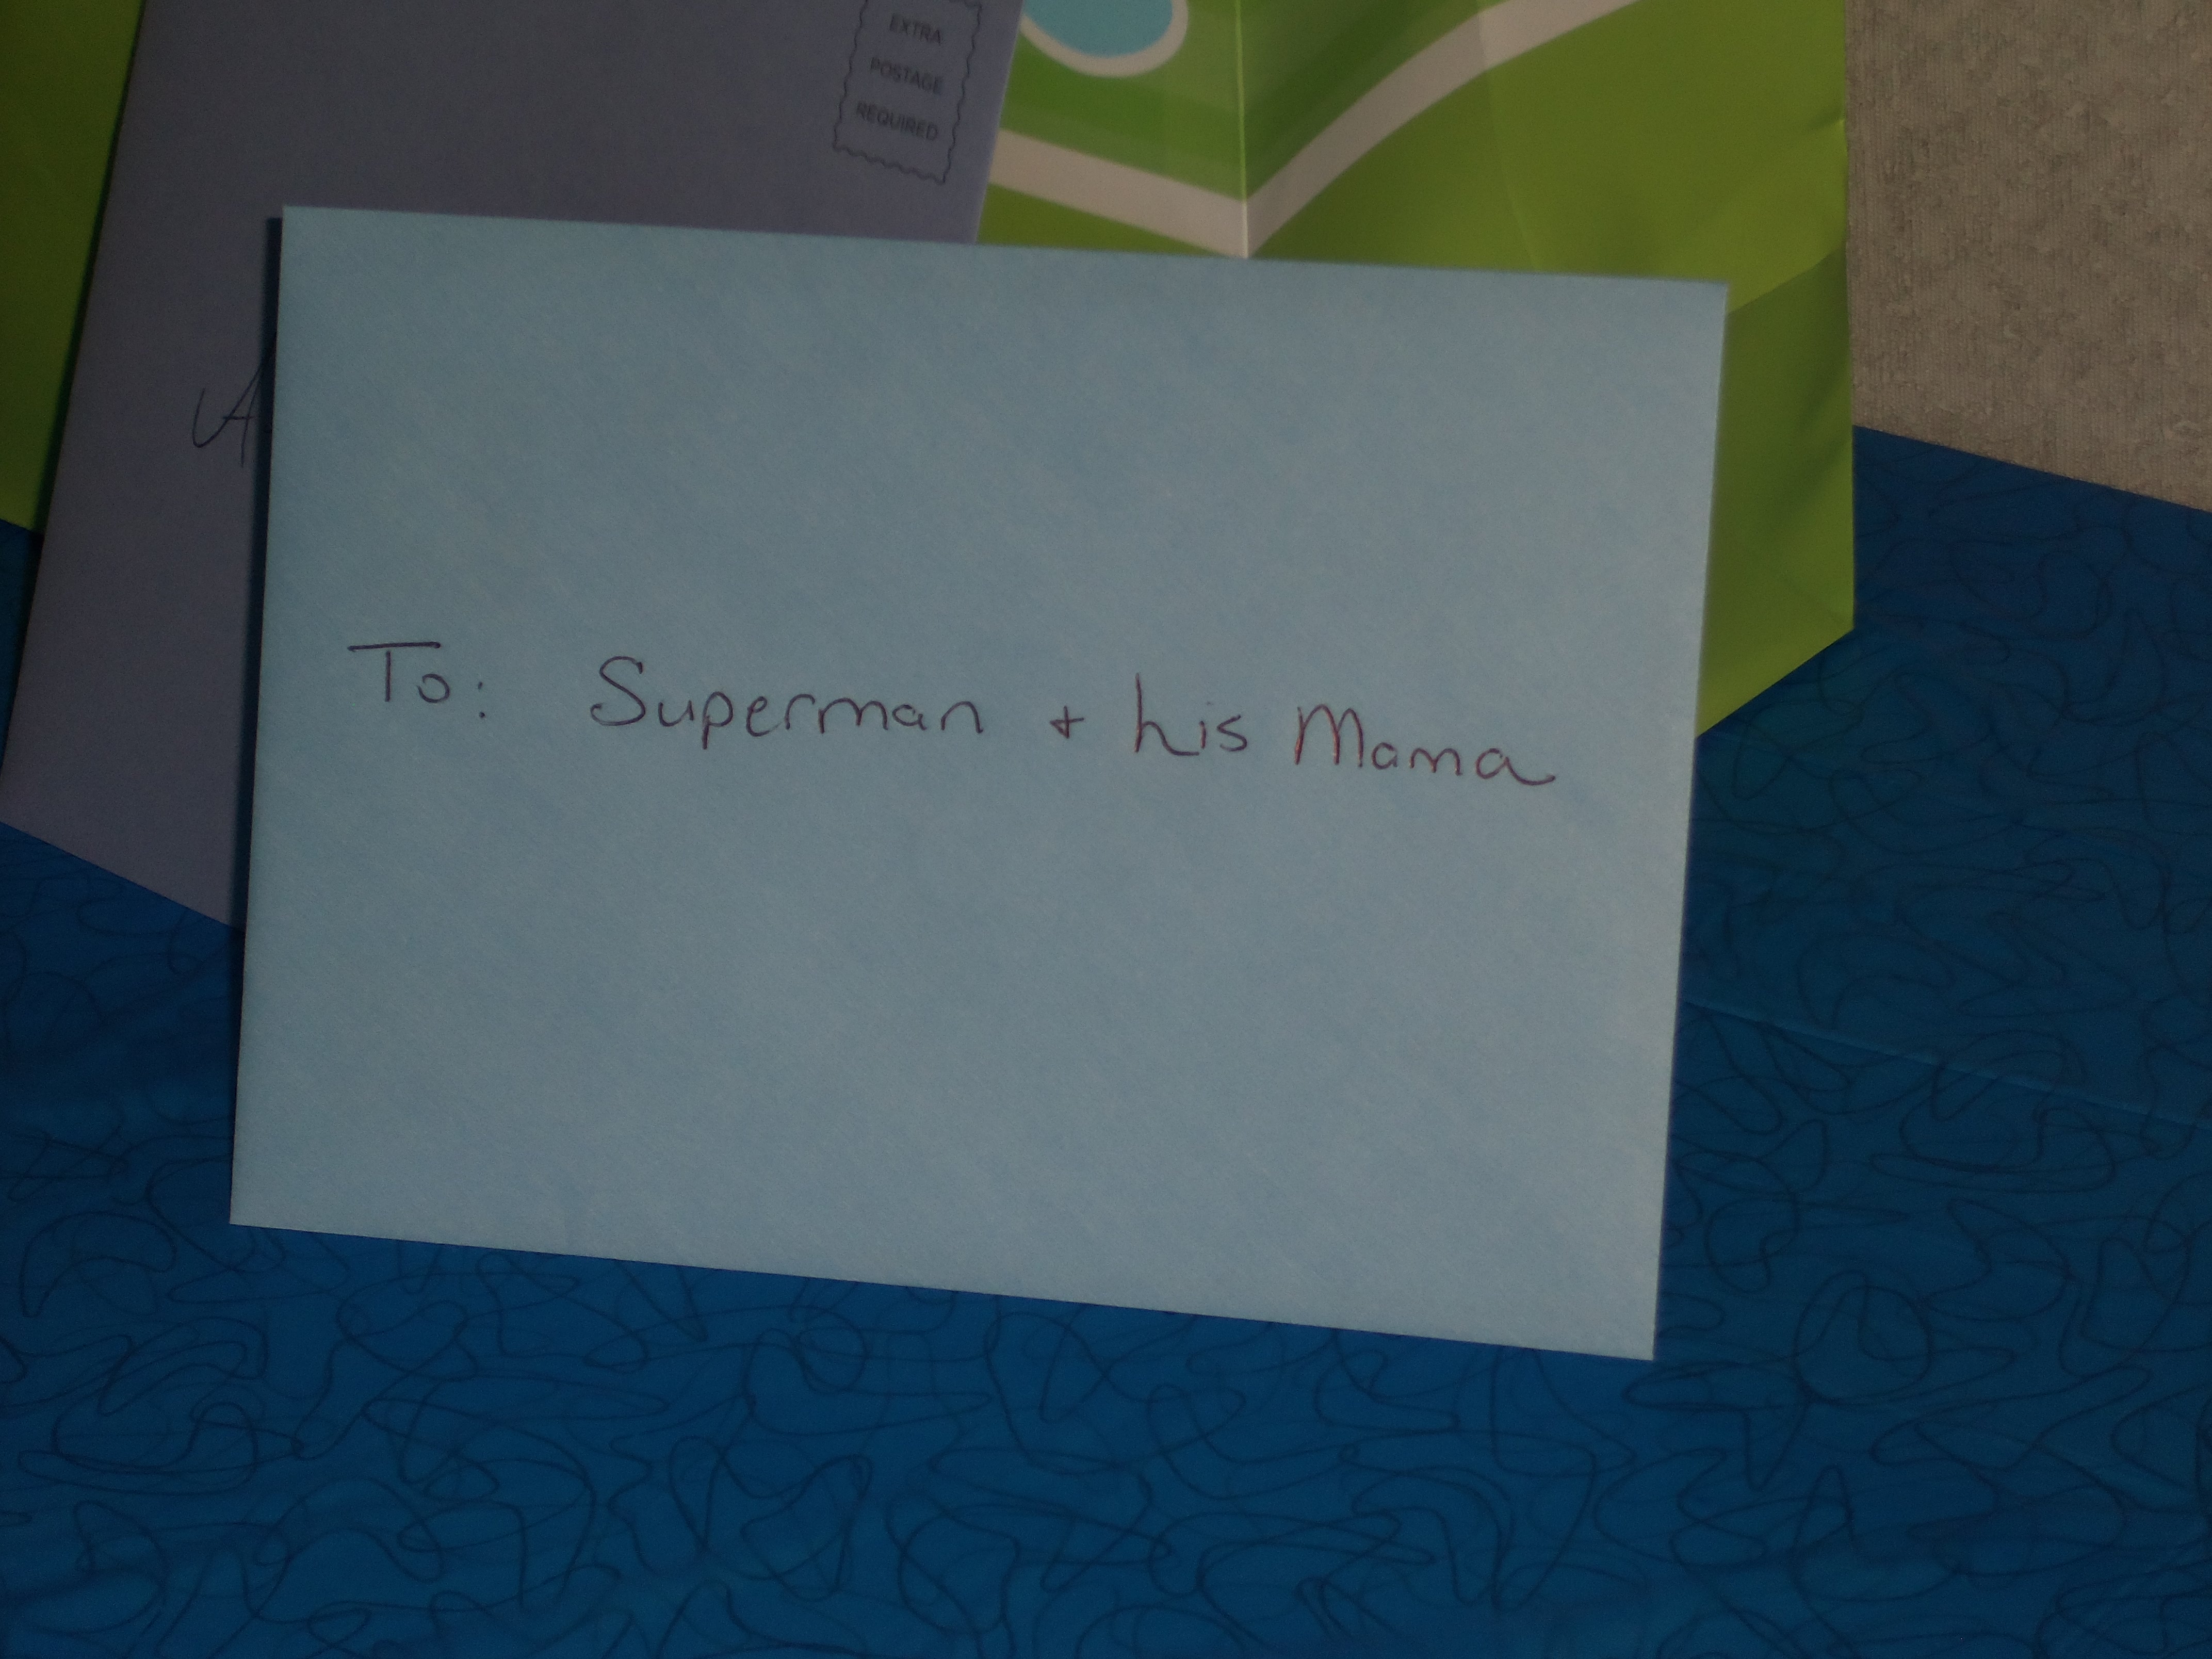 EXTRA
POSTAGE
REQUIRED
To: Superman + his Mama